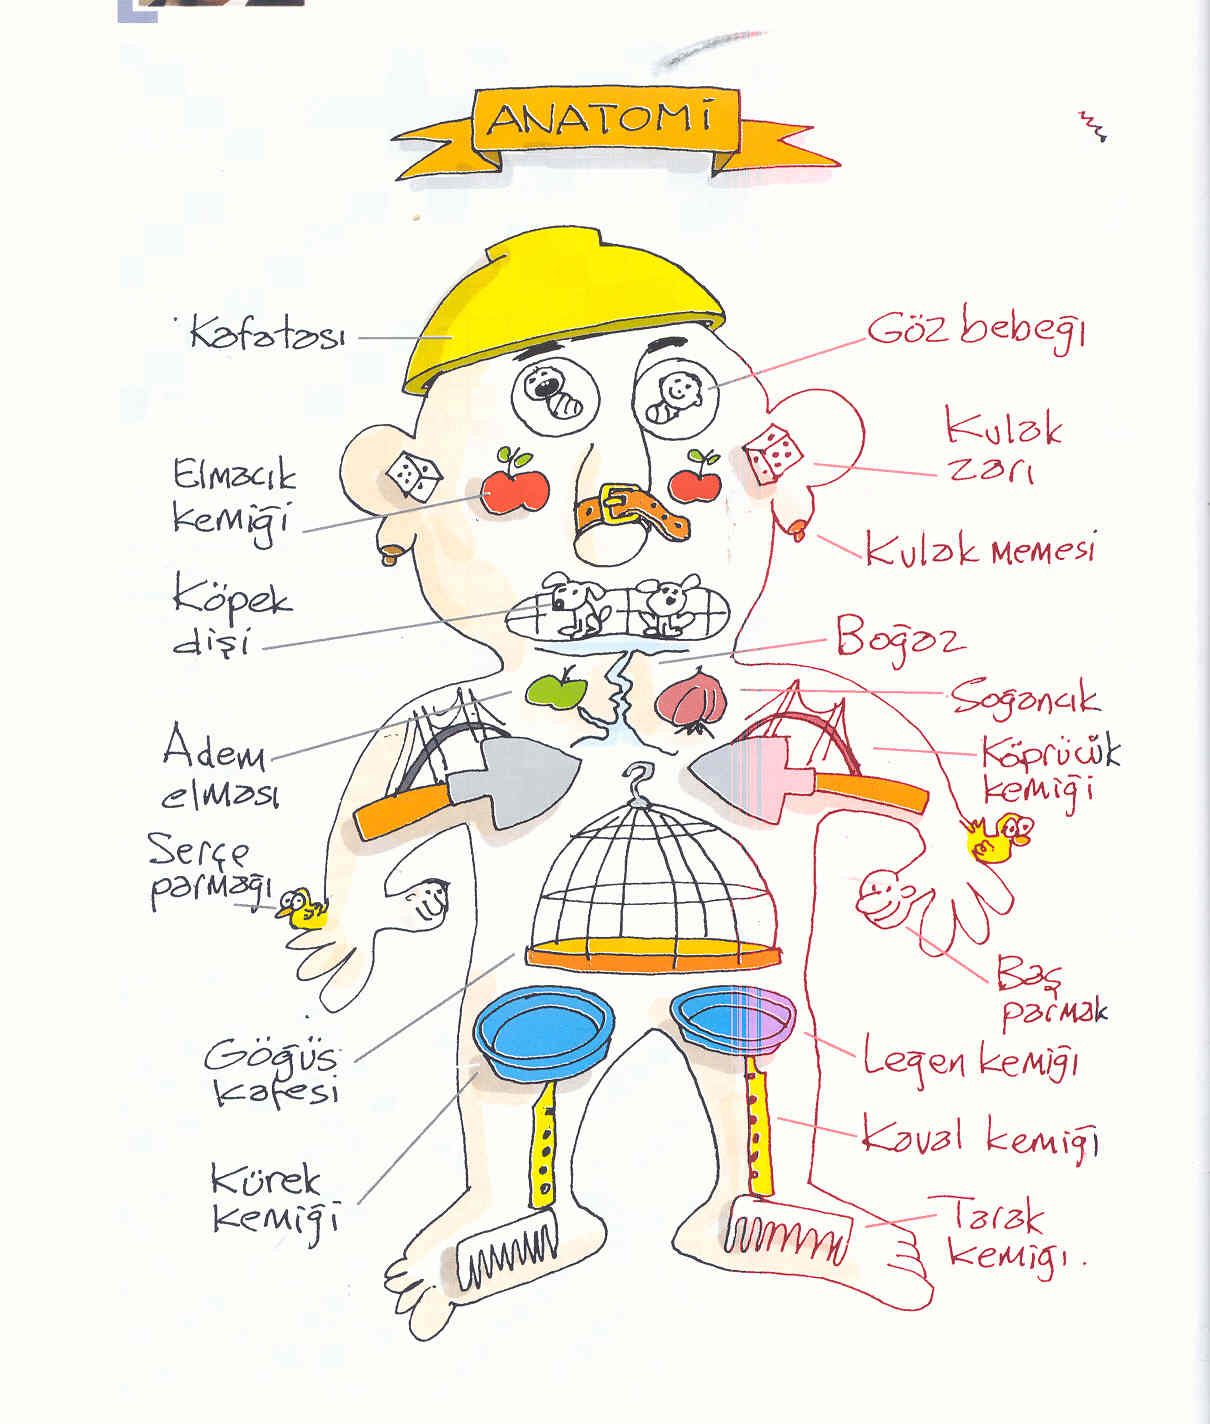 ANATOMİ
Kafatası
Göz bebeği
Kulak
zarı
Elmacık
kemiği
Kulak memesi
Köpek
dişi
Boğaz
Soğancık
Adem
elması
Köprücük
kemiği
Serçe
parmağı
Baş
parmak
Göğüs
kafesi
Leğen kemiği
Kaval kemiği
Kürek
kemiği
Tarak
kemiği.